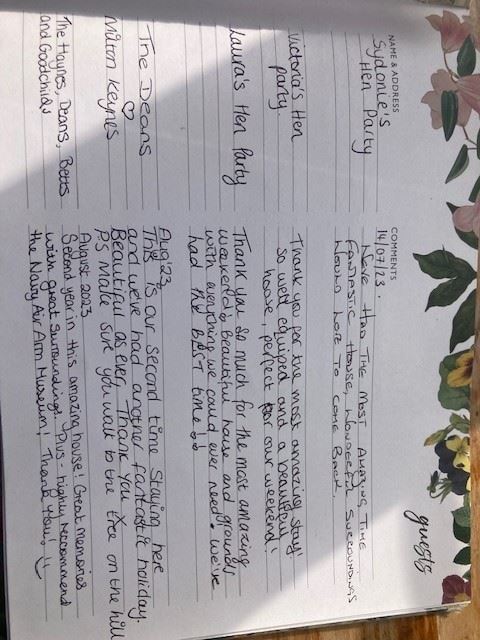 guests
NAME & ADDRESS
COMMENTS
Sydonie's
Hen Party
14/07/23.
HAVE HAD THE MOST AMAZING TIME
FANTASTIC HOUSE, WONDERFUL SURROUNDINGS
WOULD LOVE TO COME BACK.
Victoria's Hen
party.
Thank you for the most amazing stay!
So well equiped and a beautiful
house, perfect for our weekend!
Laura's Hen Party
Thank you so much for the most amazing
weekend! beautiful house and grounds
with everything we could ever need. We've
had the BEST time!!
The Deans
♡
Milton Keynes
Aug '23
This is our second time staying here
and we've had another fantastic holiday.
Beautiful as ever, Thank you x
PS Make sure you walk to the tree on the hill
The Haynes, Deans, Betts
and Goodchilds
August 2023
Second year in this amazing house! Great memories
with great surroundings. Plus - highly reccommend
the Navy Air Arm Museum! Thank you! :)